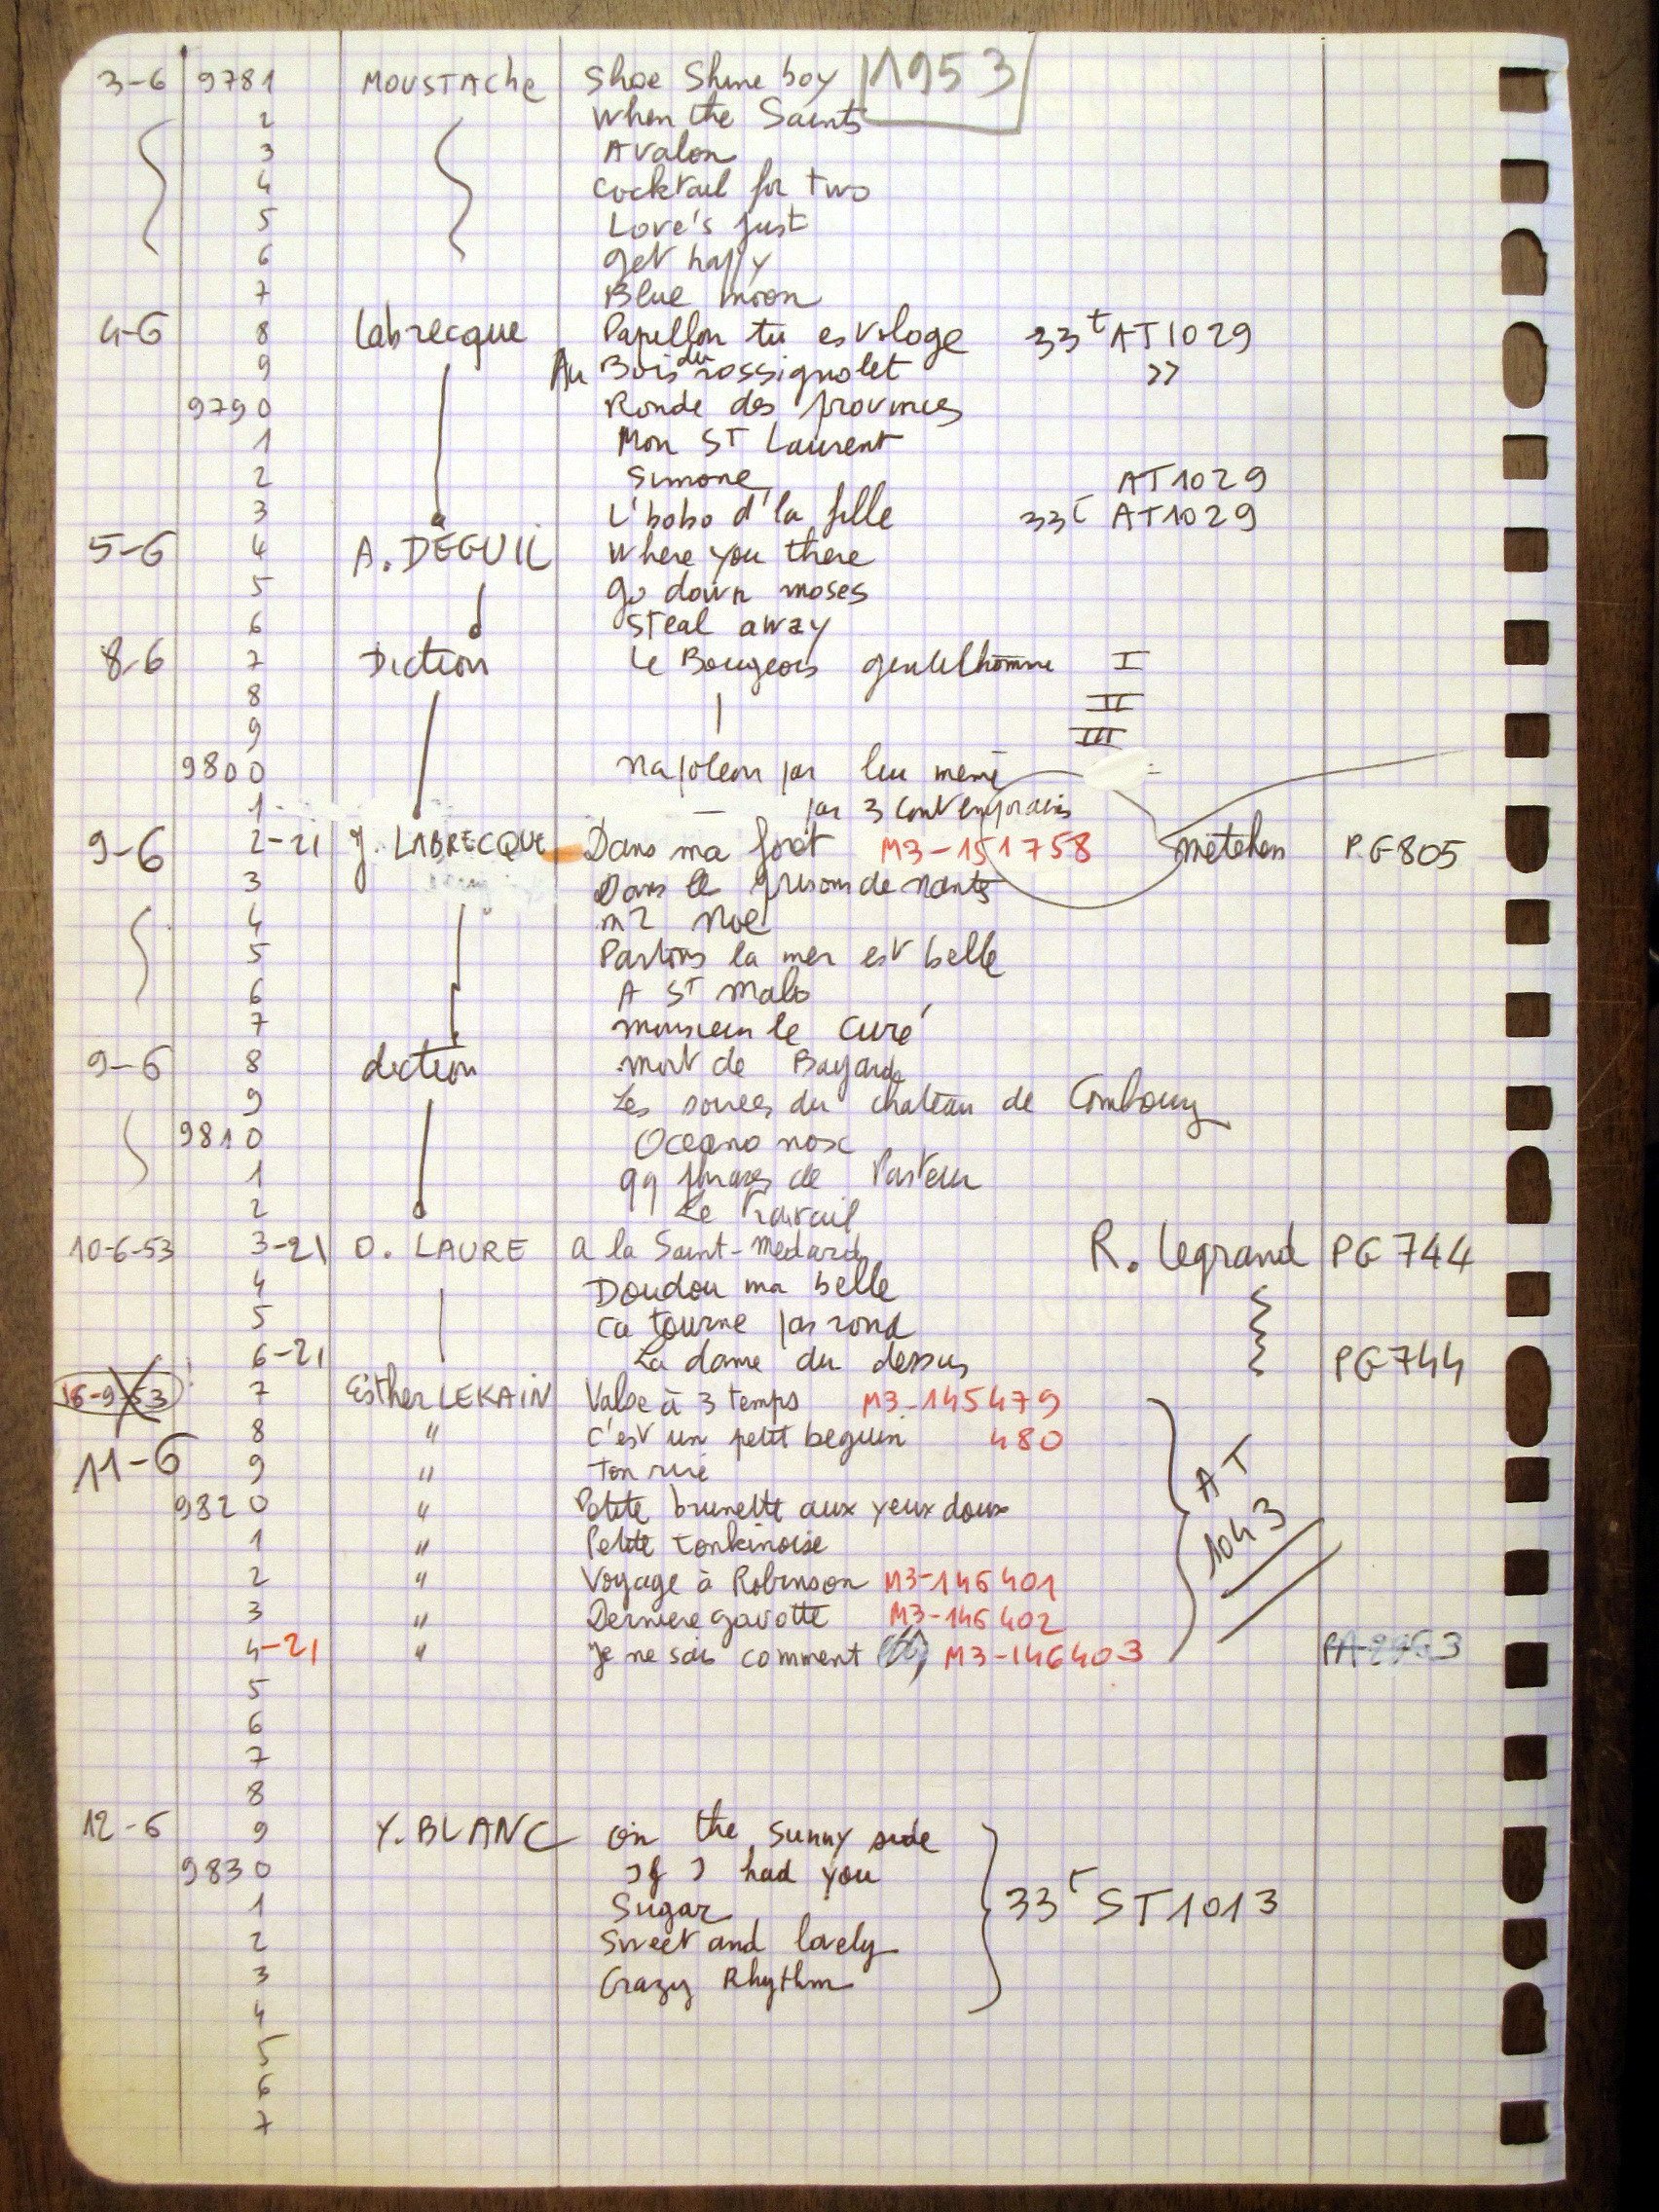 3-6 9781 MOUSTAChe Shoe Shine boy 1953
2 When the Saints
3 Avalon
4 Cocktail for two
5 Love's just
6 get happy
7 Blue moon
4-6 8 Labrecque Papillon tu es volage 33t AT1029
9 Au Bois du rossignolet "
9790 Ronde des provinces
1 Mon ST Laurent
2 Simone AT1029
3 L'bobo d'la fille 33t AT1029
5-6 4 A. DEGUIL Where you there
5 go down moses
6 Steal away
8-6 7 Diction Le Bourgeois gentelhomme I
8 II
9 III
9800 Napoleon par lui meme
1 par 3 contemporains
9-6 2-21 J. LABRECQUE Dans ma foret M3-151758 metehen P.G 805
3 Dans les prisons de Nantes
4 m2 Noe
5 Partons la mer est belle
6 A ST Malo
7 monsieur le Curé
9-6 8 diction mort de Bayard
9 Les soirees du chateau de Combourg
9810 Oceano nox
1 qq phrases de Pasteur
2 Le Travail
10-6-53 3-21 O. LAURE a la Saint-Medard R. Legrand PG 744
4 Doudou ma belle
5 ca tourne pas rond
6-21 La dame du dessus PG 744
16-9-53 7 Esther LEKAIN Valse à 3 temps M3-145479
8 " C'est un petit beguin 480
11-6 9 " Ton rire
9820 " Petite brunette aux yeux doux
AT 1043
1 " Petite Tonkinoise
2 " Voyage à Robinson M3-146401
3 " Derniere gavotte M3-146402
4-21 " Je ne sais comment M3-146403
5
6
7
8
12-6 9 Y. BLANC On the Sunny side
9830 If I had you
1 Sugar 33t ST1013
2 Sweet and lovely
3 Crazy Rhythm
4
5
6
7